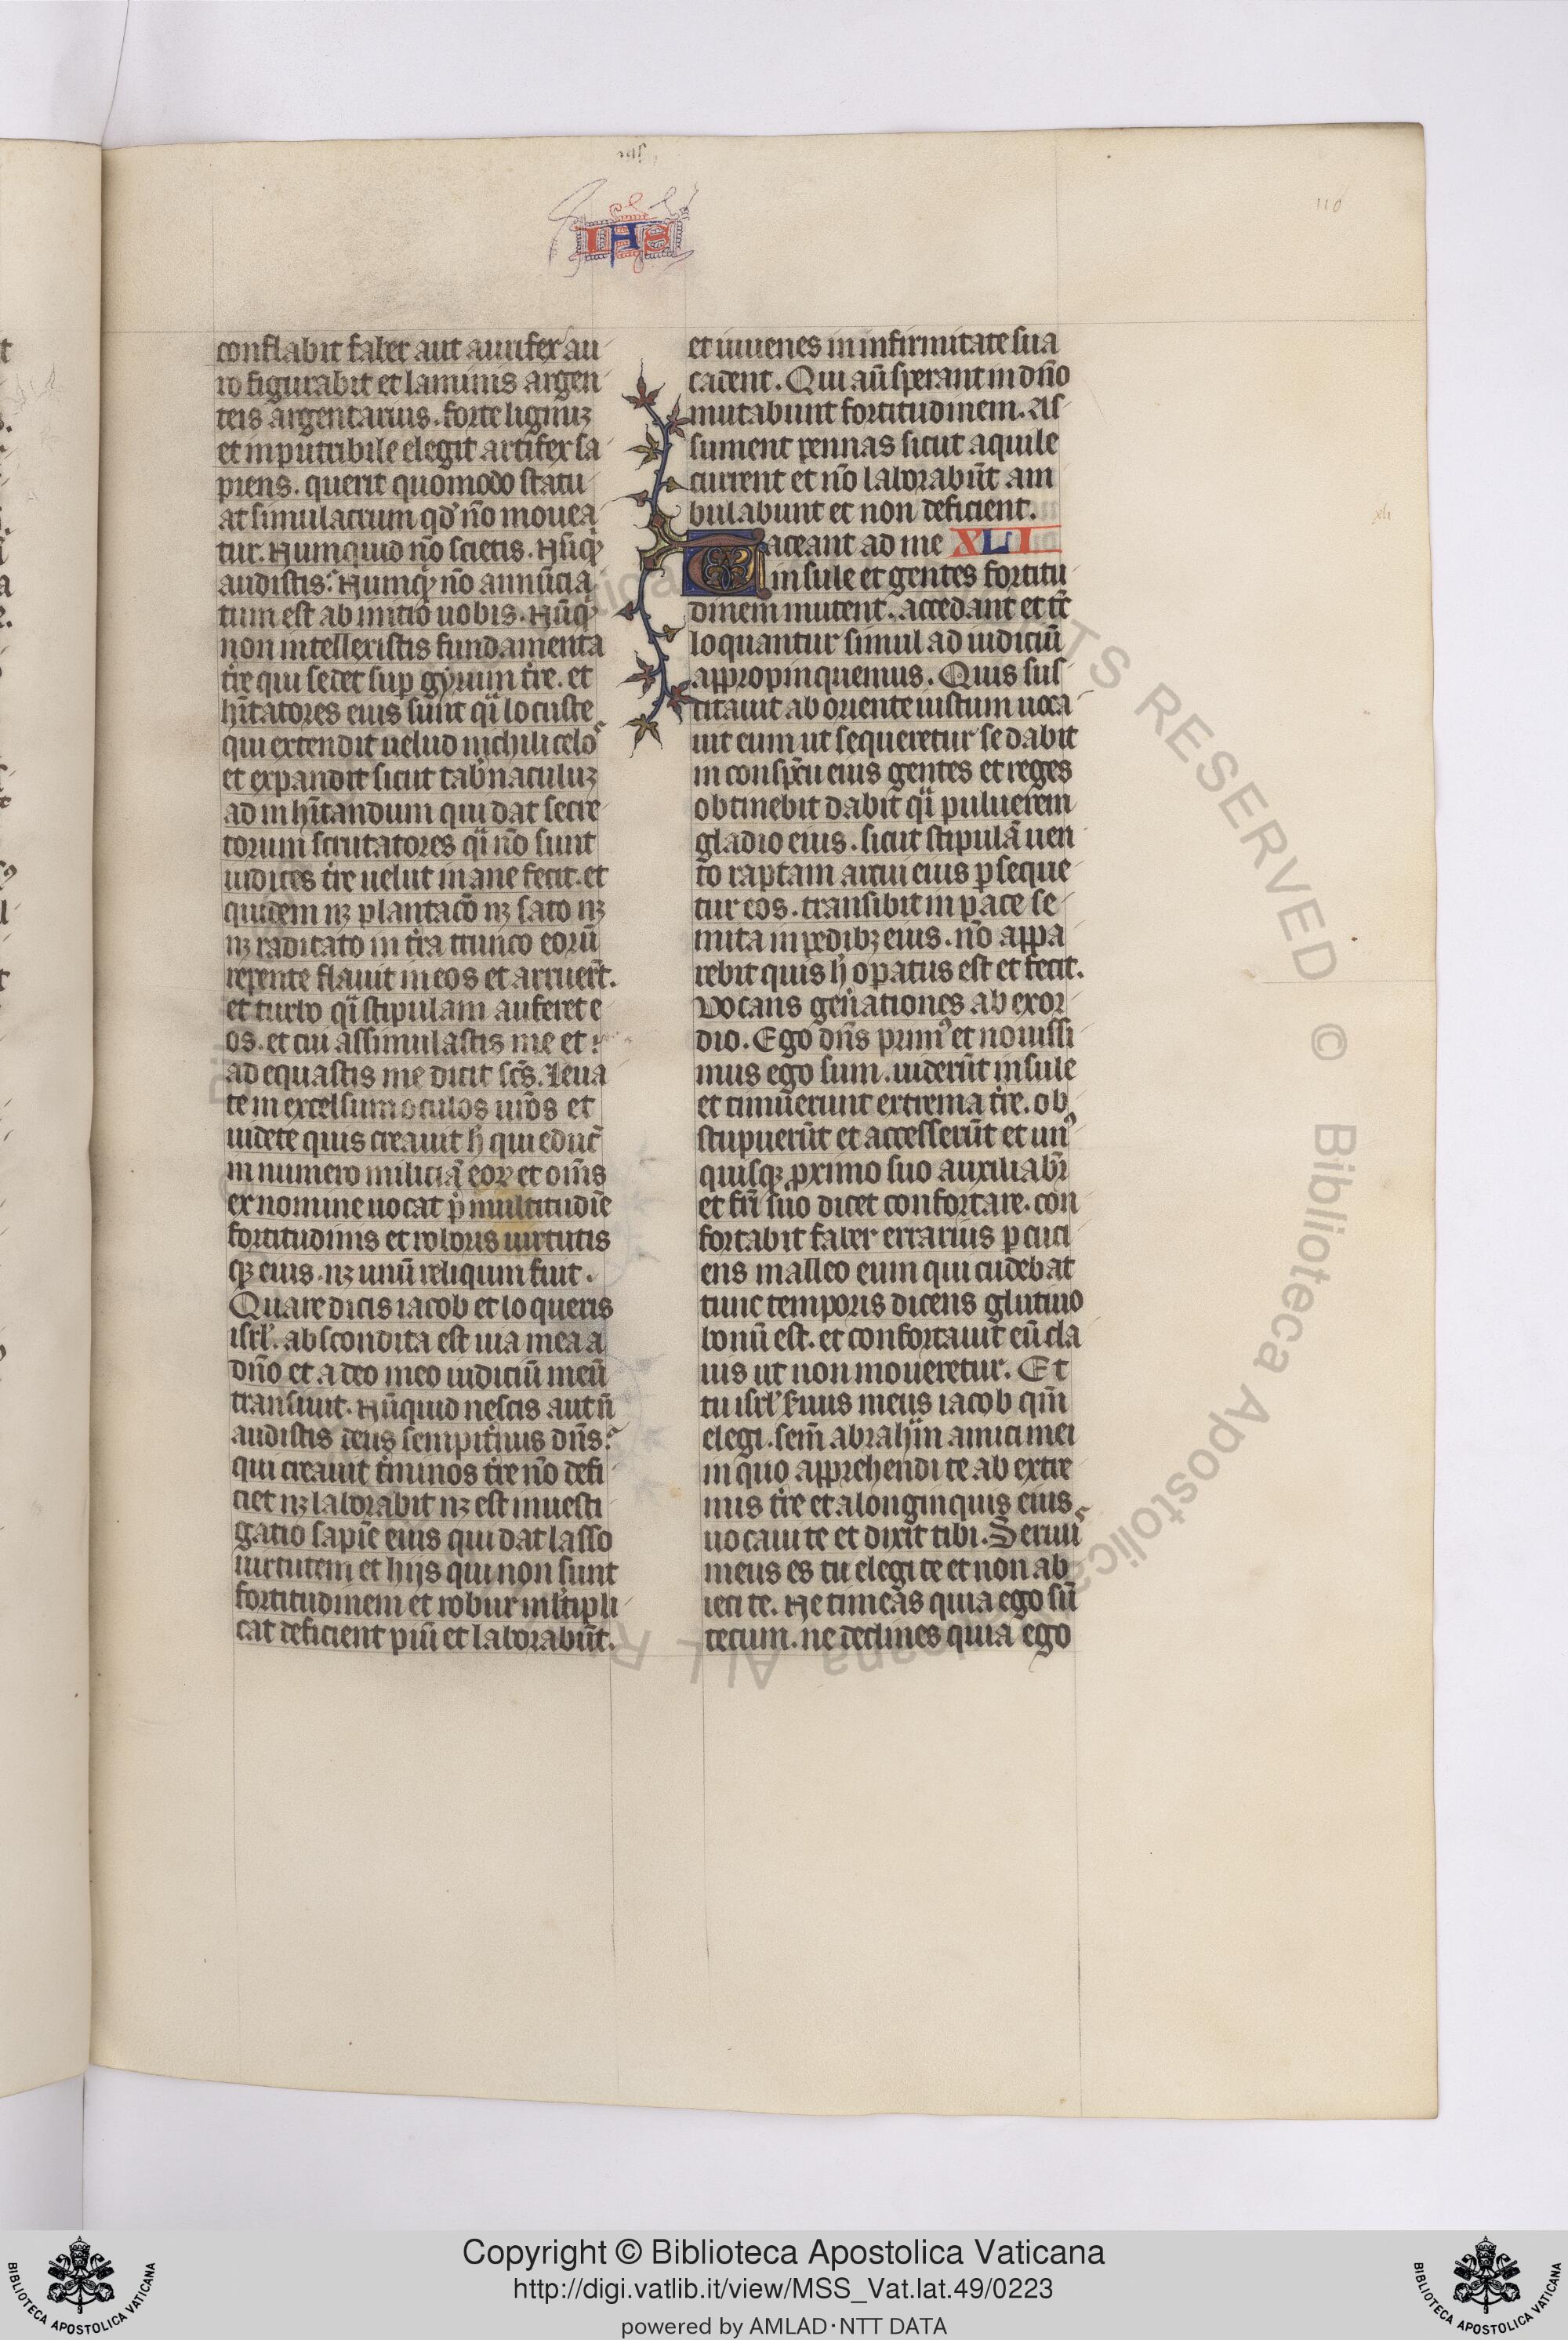 ysa
110
IHS
conflabit faber aut aurifex au
ro figurabit et laminis argen
teis argentarius. forte lignuꝫ
et inputribile elegit artifex sa
piens. querit quomodo statu
at simulacrum qd' nō mouea
tur. Numquid nō scietis. Nūqͥ
audistis. Numqͥ nō annūcia
tum est ab initio uobis. Nūqͥ
non intellexistis fundamenta
tr̄e qui sedet sup gyrum tr̄e. et
hītatores eius sunt qͣi locuste
qui extendit uelud nichili celos
et expandit sicut tab̄naculuꝫ
ad inhītandum qui dat secre
torum scrutatores qͣi nō sunt
iudices tr̄e uelut inane fecit. et
quidem nꝫ plantatō nꝫ sato nꝫ
nꝫ radicato in tr̄a trunco eorū
repente flauit in eos et aruer̄t.
et turbo qͣi stipulam auferet e
os. et cui assimulastis me et
adequastis me dicit scs̄. Leua
te in excelsum oculos ur̄os et
uidete quis creauit h̄ qui educ̄
in numero militiā eoꝝ et om̄s
ex nomine uocat p̄ multitudīe
fortitudinis et roboris uirtutis
qꝫ eius. nꝫ unū reliqum fuit.
Quare dicis iacob et loqueris
isrl'. abscondita est uia mea a
dn̄o et a deo meo iudiciū meū
transiuit. Nūquid nescis aut n̄
audistis deus sempitn̄us dn̄s.
qui creauit tm̄inos tr̄e nō defi
ciet nꝫ laborabit nꝫ est inuesti
gatio sapīe eius qui dat lasso
uirtutem et hijs qui non sunt
fortitudinem et robur ml̄tipli
cat deficient puī et laborabūt.
et iuuenes in infirmitate sua
cadent. Qui aū sperant in dn̄o
mutabunt fortitudinem. As
sument pennas sicut aquile
current et nō laborabūt am
bulabunt et non deficient.
Taceant ad me XLI
xli
insule et gentes fortitu
dinem mutent. accedant et tc̄
loquantur simul ad iudiciū
appropinquemus. Quis sus
citauit ab oriente iustum uoca
uit eum ut sequeretur se dabit
in conspc̄u eius gentes et reges
obtinebit dabit qͣi puluerem
gladio eius. sicut stipulā uen
to raptam arcui eius pseque
tur eos. transibit in pace se
mita in pedibꝫ eius. nō appa
rebit quis h̄ opatus est et fecit.
Vocans gen̄ationes ab exor
dio. Ego dn̄s prim⁹ et nouissi
mus ego sum. uiderūt insule
et timuerunt extrema tr̄e. ob
stupuerūt et accesserūt et un⁹
quisqꝫ pximo suo auxiliabr̄
et frī suo dicet confortare. con
fortabit faber errarius pcuci
ens malleo eum qui cudebat
tunc temporis dicens glutino
bonū est. et confortauit eū cla
uis ut non moueretur. Et
tu isrl' s̄uus meus iacob qm̄
elegi. sem̄ abrahm̄ amici mei
in quo apprehendi te ab extre
mis tr̄e et a longinquis eius
uocaui te et dixit tibi. Seruus
meus es tu elegi te et non ab
ieci te. Ne timeas quia ego sū
tecum. ne declines quia ego
© Biblioteca Apostolica Vaticana ALL RIGHTS RESERVED
Copyright © Biblioteca Apostolica Vaticana
http://digi.vatlib.it/view/MSS_Vat.lat.49/0223
powered by AMLAD·NTT DATA
BIBLIOTECA APOSTOLICA VATICANA
BIBLIOTECA APOSTOLICA VATICANA